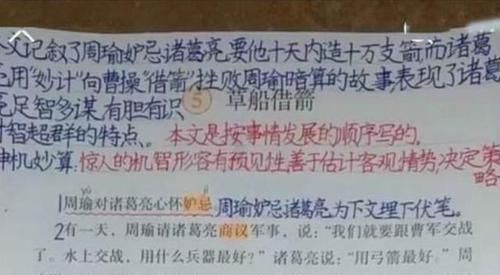 文记叙了周瑜妒忌诸葛亮,要他十天内造十万支箭,而诸葛
用"妙计"向曹操"借箭",挫败周瑜暗算的故事,表现了诸葛
足智多谋,有胆有识
5 草船借箭
才智超群的特点。 本文是按事情发展的顺序写的。
神机妙算:惊人的机智,形容有预见性,善于估计客观情势,决定策
略
dù jì
周瑜对诸葛亮心怀妒忌 周瑜妒忌诸葛亮,为下文埋下伏笔。
2有一天,周瑜请诸葛亮商议军事,说:"我们就要跟曹军交战
了。水上交战,用什么兵器最好?"诸葛亮说:"用弓箭最好。"周